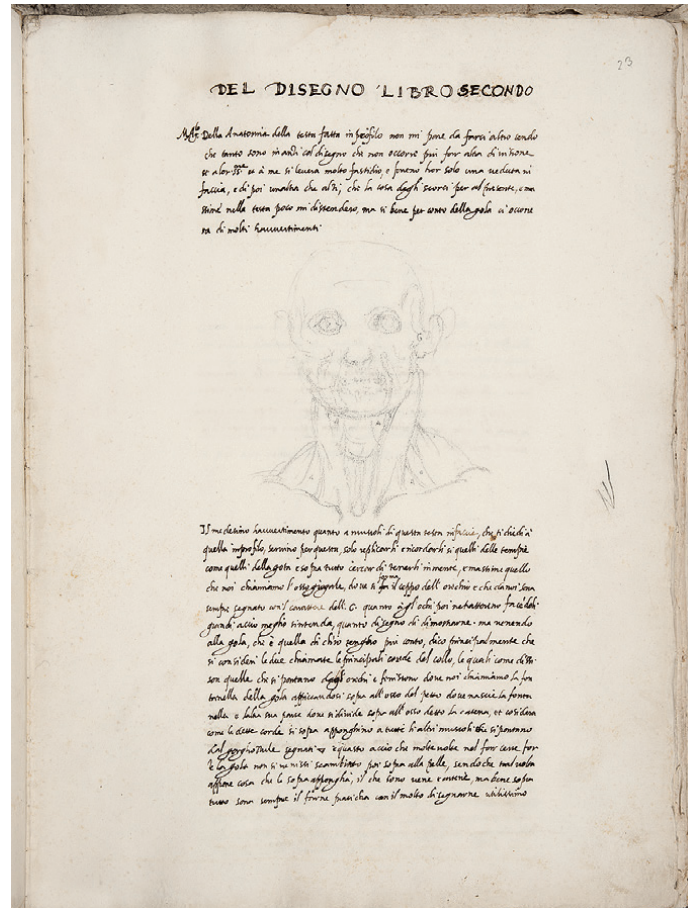 23
DEL DISEGNO LIBRO SECONDO
Della Anatomia della testa fatta in profilo non mi pare da farvi altro sendo
che tanto sono inanzi col disegno che non occorre piu far altra dimitione
se a me si levera molto fastidio, e faremo hor solo una veduta in
faccia, e di poi unaltra che alzi, che la cosa degli scorci per al presente, e ma
ssime nella testa poco mi distendero, ma si bene per conto della gola ci occorre
ra di molti havvertimenti
Il medesimo havvertimento quanto a muscoli di questa testa in faccia, che si diedi a
quella in profilo, servino per questa, solo replicarli e ricordarli si quelli delle tempie
come quelli della gota e sopra tutto cercar di tenerli in mente, e massime quello
che noi chiamiamo l'osso giugale, dove si ferma il ceppo dell' orechio e che da noi sara
sempre segnato con il carattere dell. G. quanto agl ochi poi
grandi accio meglio sintenda, quanto disegno di dimostrarne. ma venendo
alla gola, che è quella di chio tengho piu conto, dico principalmente che
si consideri le due chiamate le principali corde del collo, le quali come dissi
son quelle che si partano dagl orechi e finiscono dove noi chiamiamo la fon
tanella della gola apiccandosi sopra all osso del petto dove nascie la fonta
nella e lalta sua parte dove si divide sopra all' osso detto la catena, et cosidera
come le dette corde si sopra apponghino a tutti li altri muscoli che si partano
dal segnati e questo accio che molte volte nel far certe
la gola non si venissi scambiato poi sopra alla pelle, sendo che mal volta
appare cosa che le sopra appongha, il che come viene ma bene sopra
tutto sara sempre il farne praticha con il molto disegnarne utilissimo